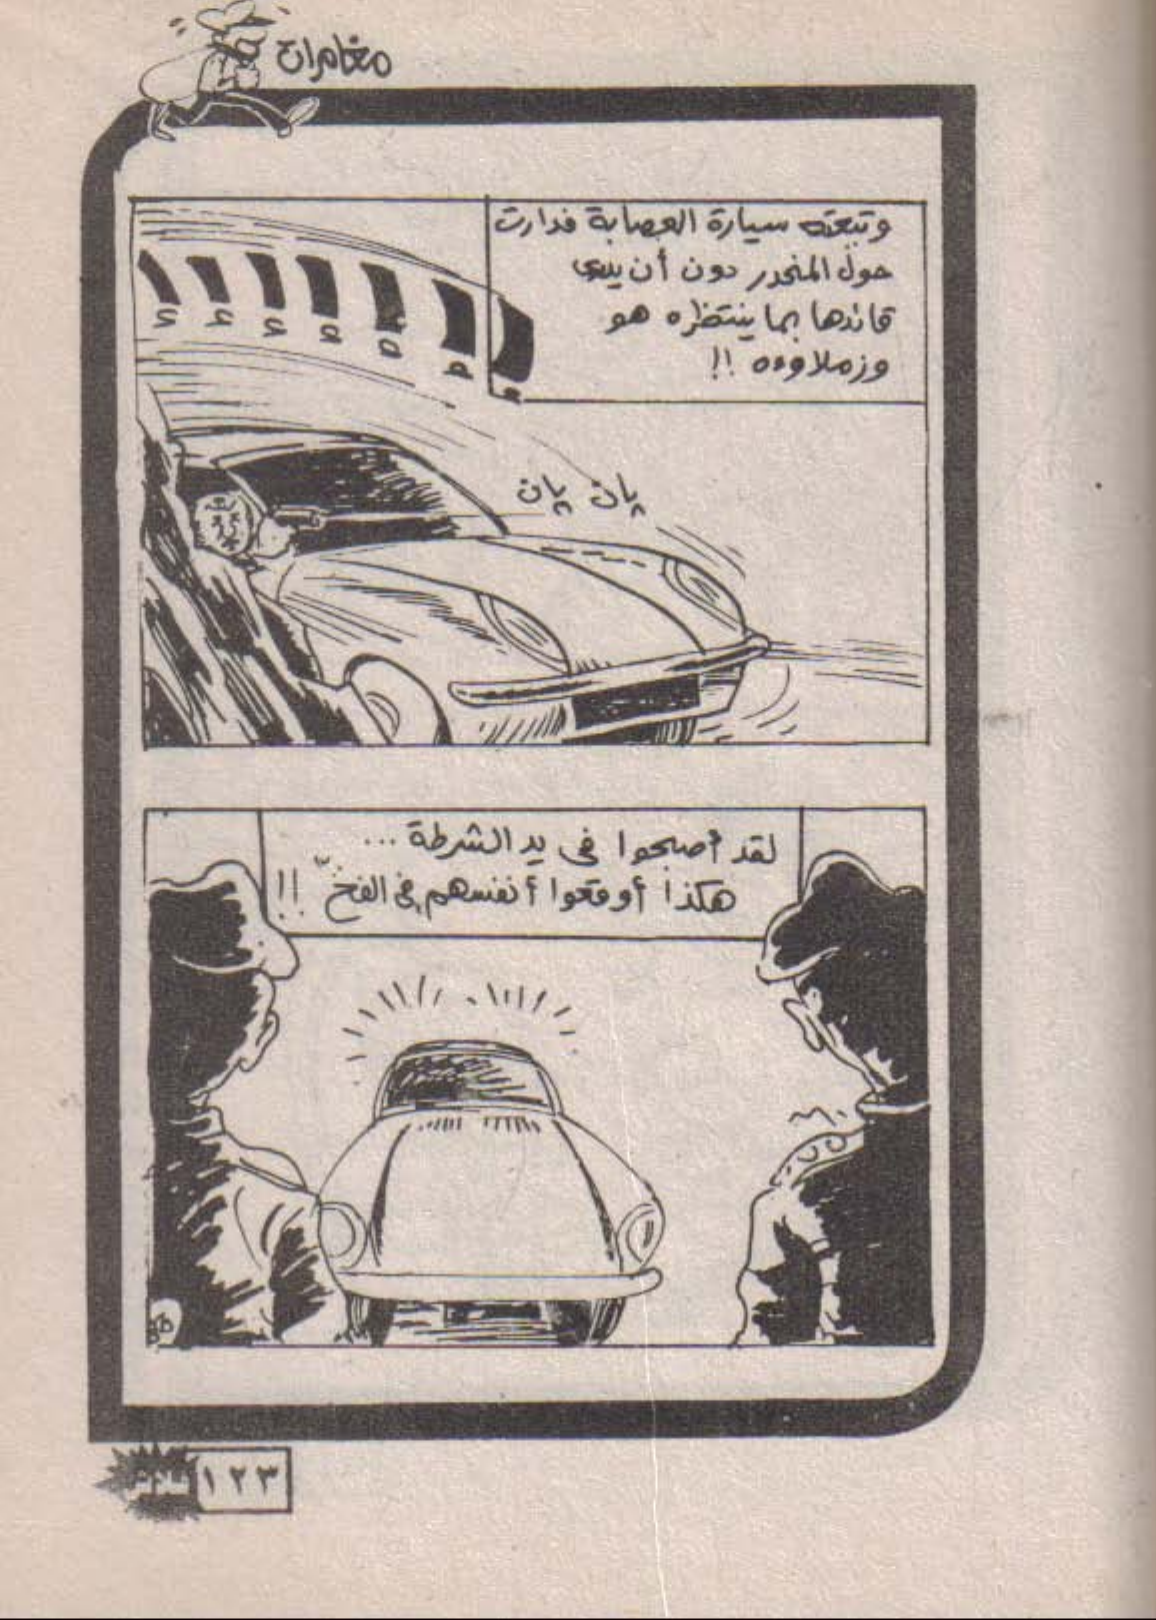 مغامرات
وتبعته سيارة العصابة فدارت
حول المنحدر دون أن يدرى
قائدها بما ينتظره هو
وزملاوءه !!
يإن يإن
لقد أصبحوا فى يد الشرطة ...
هكذا أوقعوا أنفسهم فى الفخ !!
فلاش
١٢٣